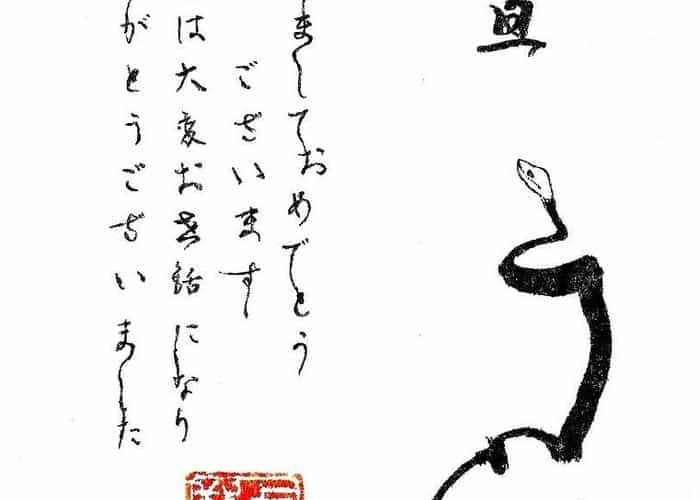 旦
ましておめでとう
ございます
は大変お世話になり
がとうございました